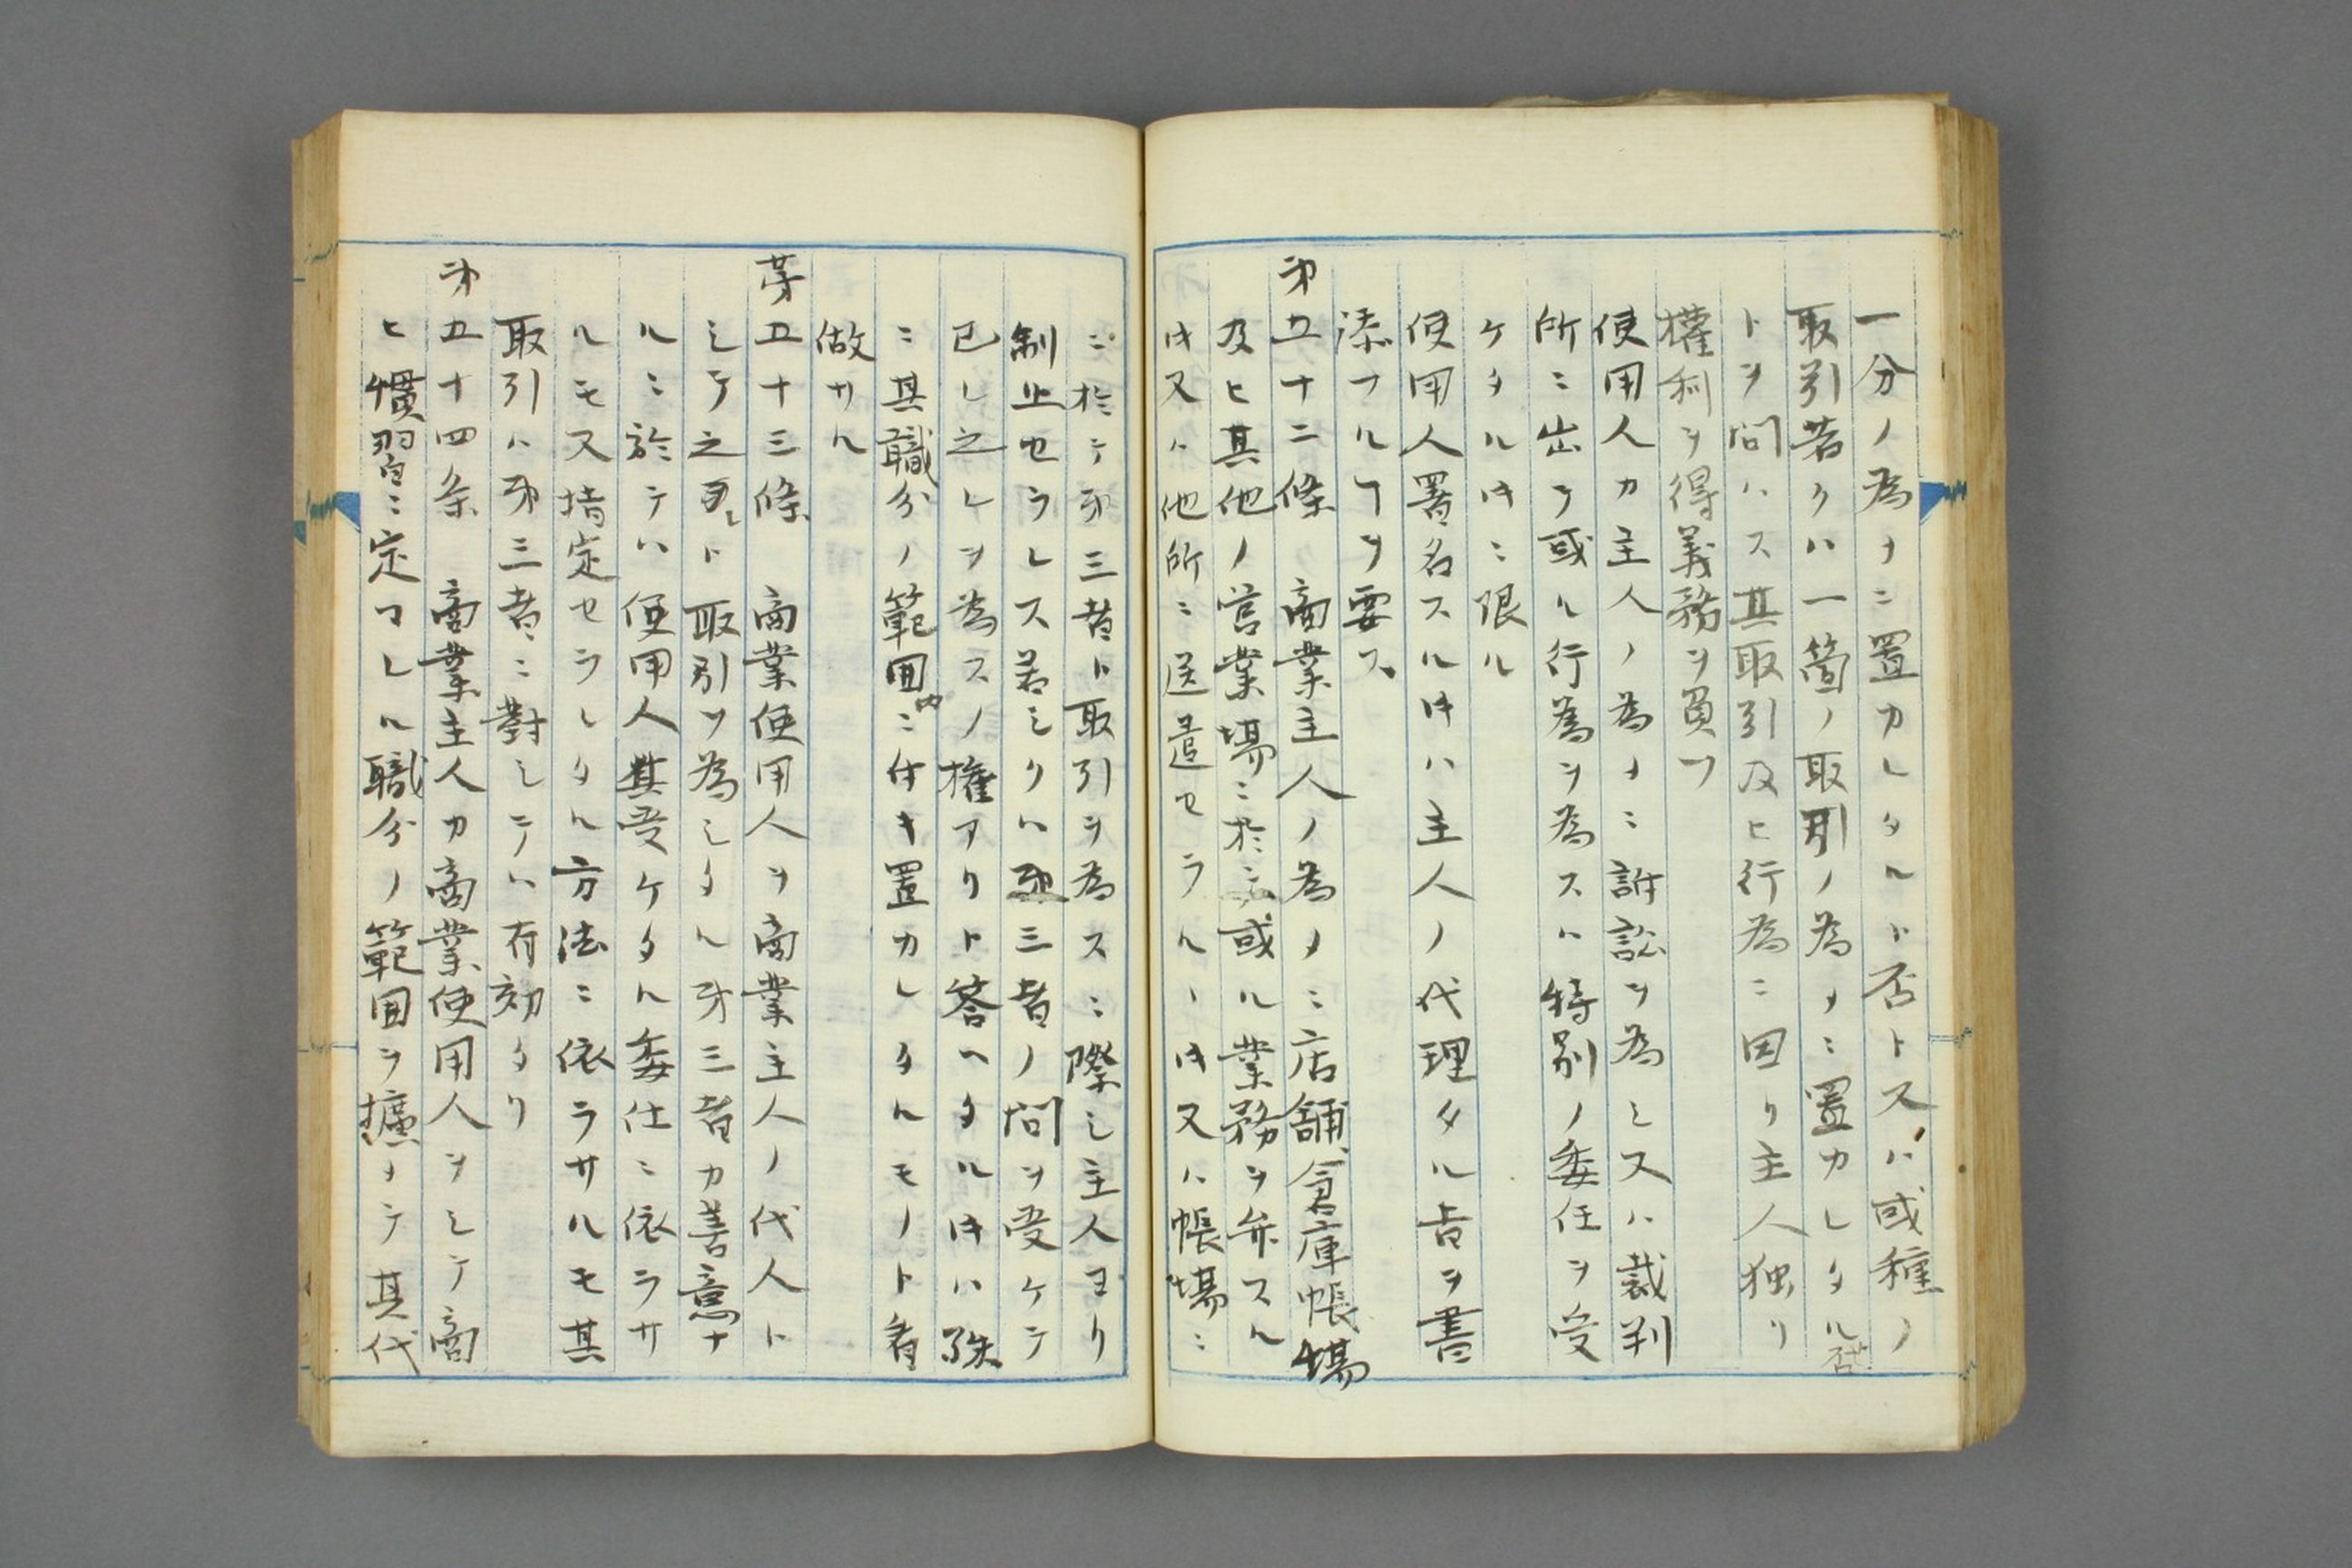 一分ノ為メニ置カレタルト否トヌハ或種ノ
取引若クハ一箇ノ取引ノ為メニ置カレタル否
トヲ問ハス其取引及ヒ行為ニ因リ主人独リ
権利ヲ得義務ヲ負フ
使用人カ主人ノ為メニ訴訟ヲ為シ又ハ裁判
所ニ出テ或ル行為ヲ為スハ特別ノ委任ヲ受
ケタルﾄキニ限ル
使用人署名スルﾄキハ主人ノ代理タル旨ヲ書
添フルヿヲ要ス
第五十二條　商業主人ノ為メニ店舗、倉庫帳場
及ヒ其他ノ営業場ニ於テ或ル業務ヲ弁スル
ﾄキ又ハ他所ニ送遣セラルヽﾄキ又ハ帳場ニ
ニ於テ第三者ト取引ヲ為スニ際シ主人ヨリ
制止セラレス若シクハ第三者ノ問ヲ受ケテ
已レ之レヲ為スノ権アリト答ヘタルﾄキハ殊
ニ其職分ノ範囲内ニ付キ置カレタルモノト看
做サル
第五十三條　商業使用人ヲ商業主人ノ代人ト
シテ之ﾚト取引ヲ為シタル第三者カ善意ナ
ルニ於テハ使用人其受ケタル委任ニ依ラサ
ルモ又指定セラレタル方法ニ依ラサルモ其
取引ハ第三者ニ對シテハ有効タリ
第五十四条　商業主人カ商業使用人ヲシテ商
ヒ慣習ニ定マレル職分ノ範囲ヲ擴メテ其代